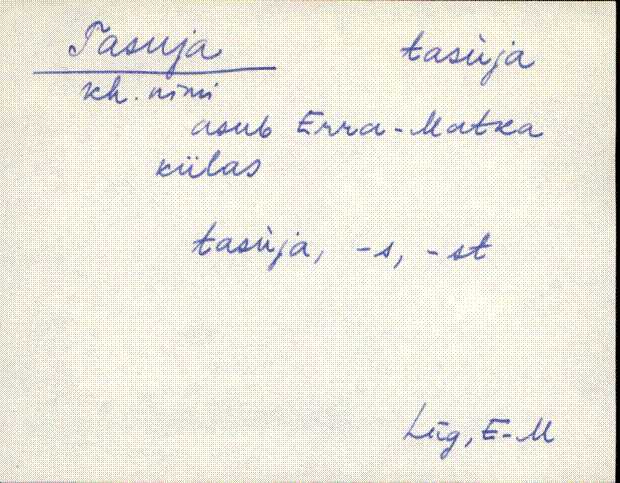 Tasuja tasùja
kh. nimi
asub Erra-Matka
külas
tasùja, -s, -st
Lüg, E-M